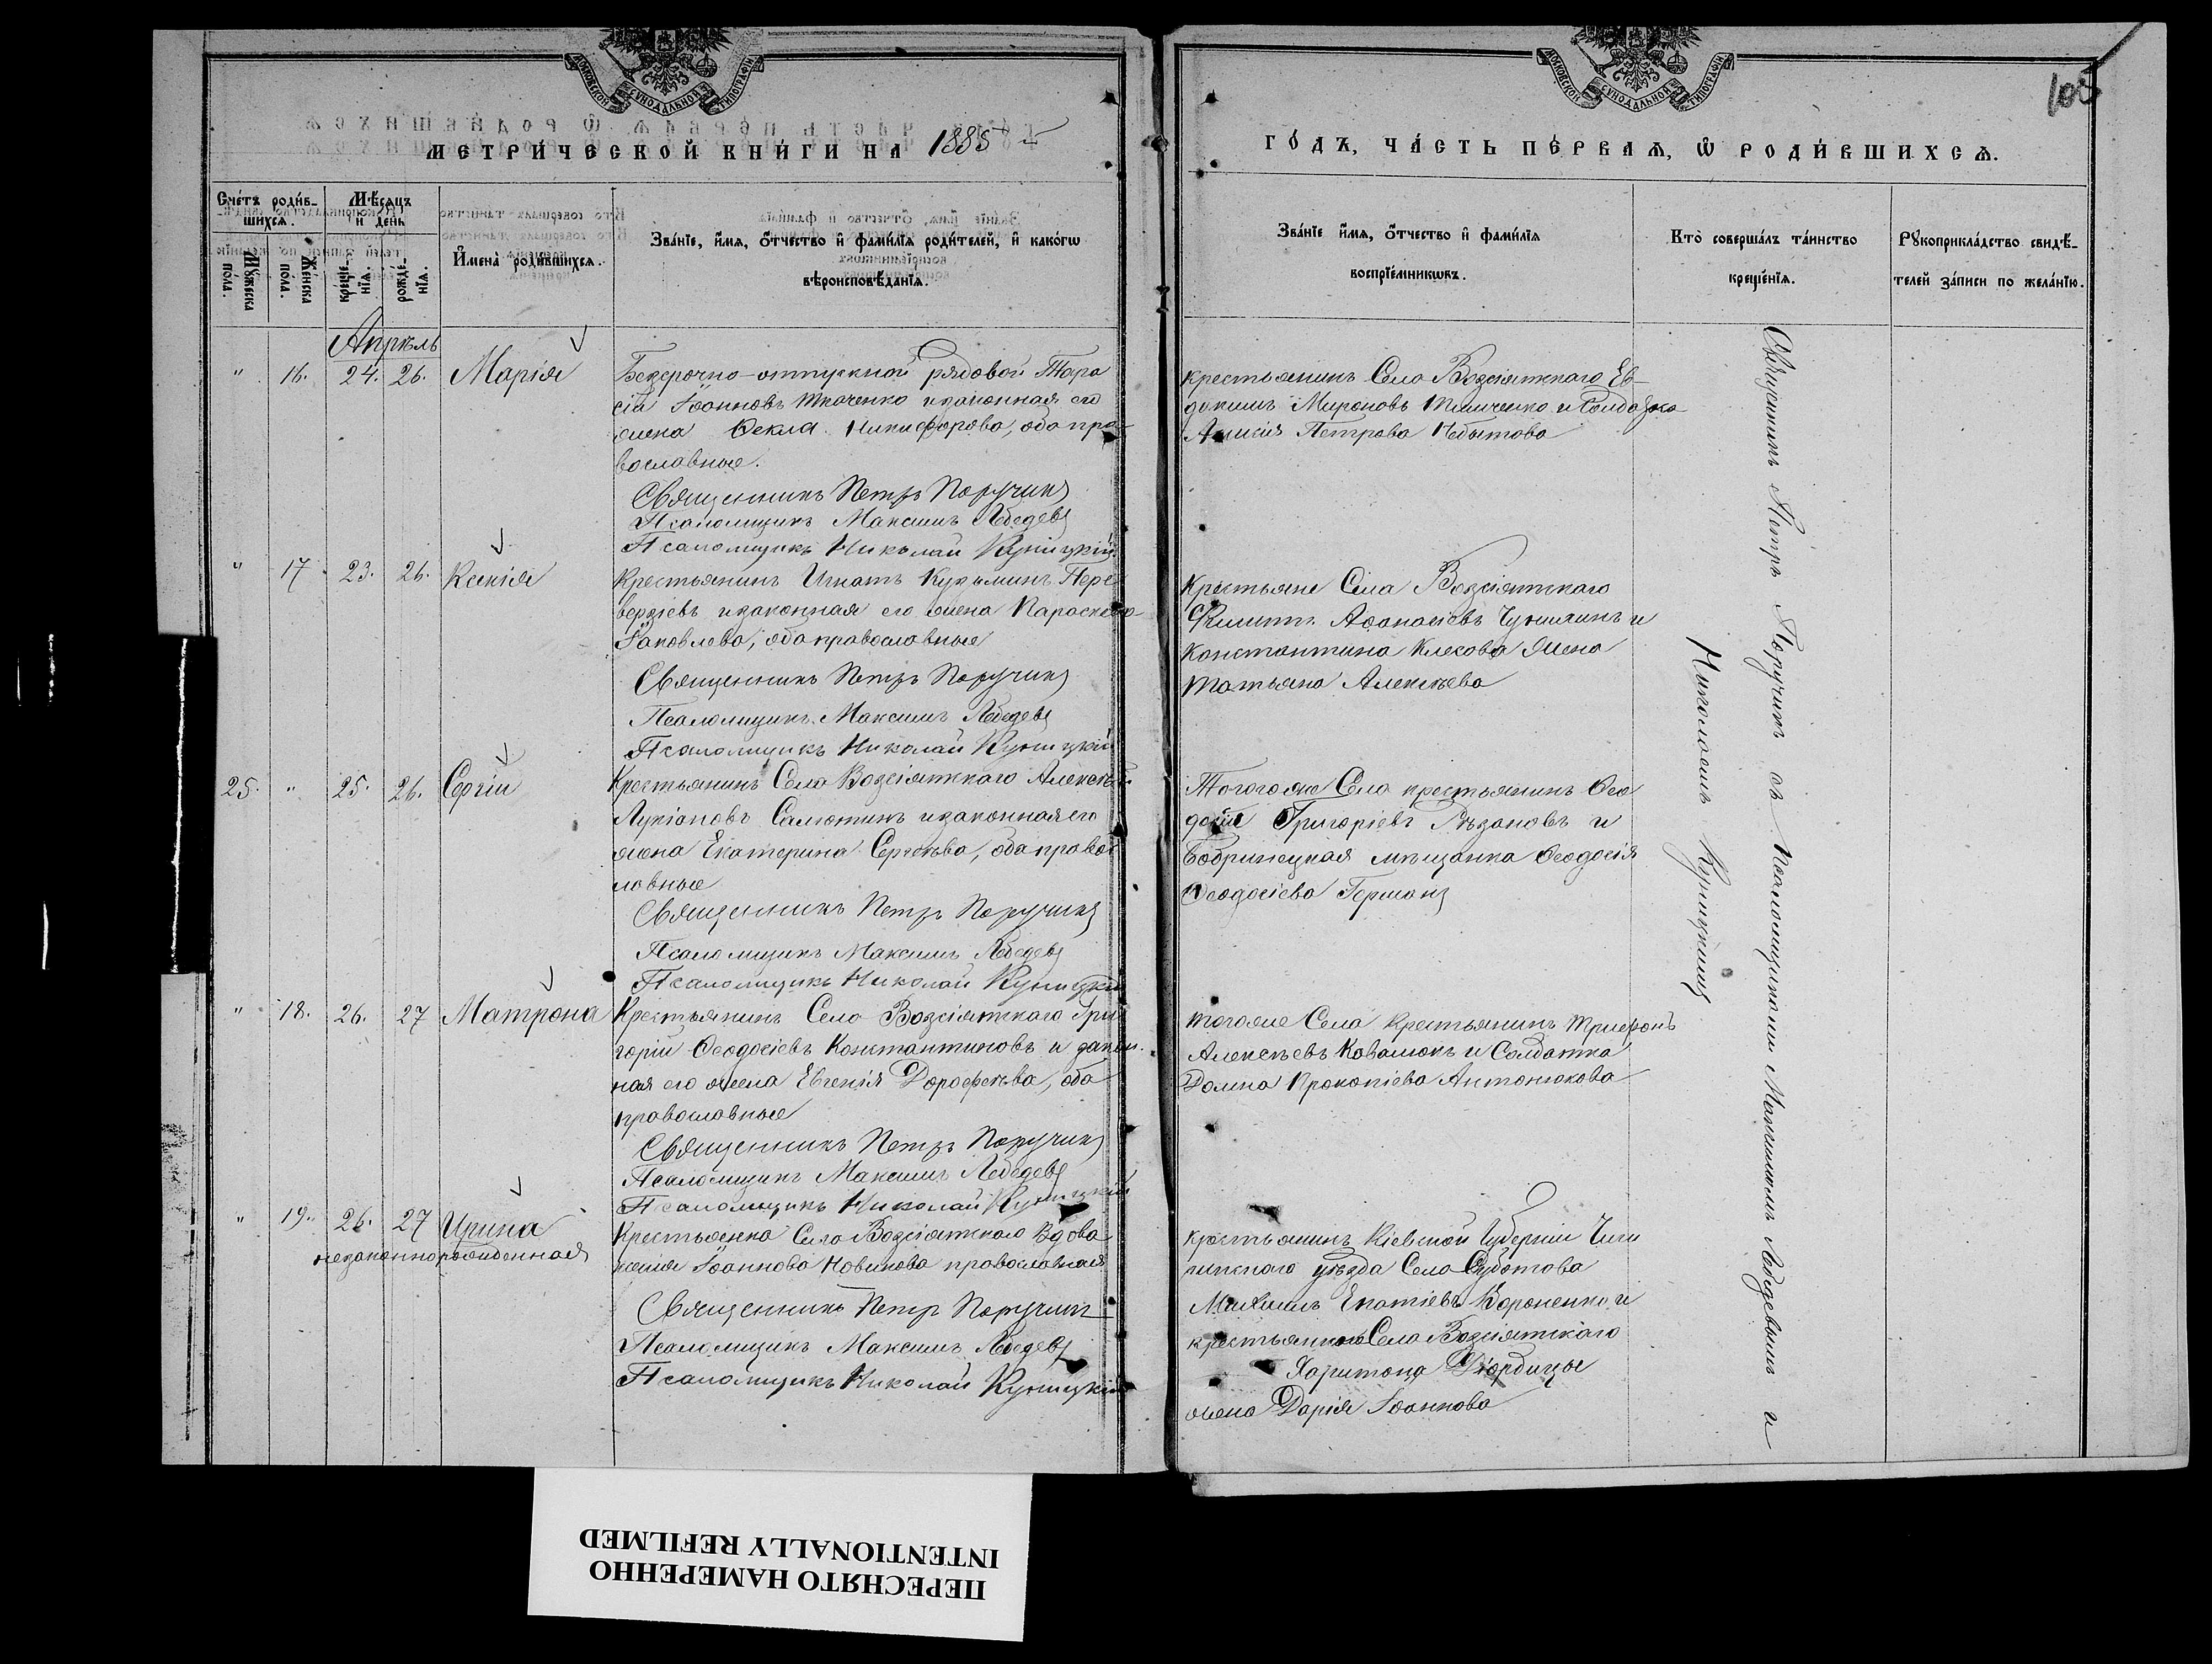 МОСКОВСКОЙ СУНОДАЛЬНОЙ ТИПОГРАФІИ
МЕТРИ́ЧЕСКОЙ КНИ́ГИ НА 1885
Сче́тъ роди́в-
шихсѧ.
Мѣ́сяцъ
и день
Мꙋжеска
пола.
Же́нска
пола.
рожде́-
нїѧ.
И҆мена̀ роди́вшихсѧ.
Зва́нїе, и҆́мѧ, ѻ҆́тчество и҆ фами́лїѧ роди́телей, и҆ како́гѡ
вѣроисповѣ́данїѧ.
Апрѣль
" 16. 24. 26. Марія
Безсрочно-отпускной рядовой Тара
сій Іоанновъ Ткаченко и законная его
жена Ѳекла Никифорова, оба пра
вославные.
Священникъ Петръ Поручикъ
Псаломщикъ Максимъ Лебедевъ
Псаломщикъ Николай Куницкій
" 17 23. 26. Ксенія
Крестьянинъ Игнатъ Кузьминъ Пере
верзіевъ и законная его жена Параскева
Іаковлева, оба православные
Священникъ Петръ Поручикъ
Псаломщикъ Максимъ Лебедевъ
Псаломщикъ Николай Куницкій
25. " 25. 26. Сергій
Крестьянинъ Села Возсіятскаго Алексѣй
Лукіановъ Самотинъ и законная его
жена Екатерина Сергѣева, оба правос
лавные
Священникъ Петръ Поручикъ
Псаломщикъ Максимъ Лебедевъ
Псаломщикъ Николай Куницкій
" 18. 26. 27 Матрона
Крестьянинъ Села Возсіятскаго Гри
горій Ѳеодосіевъ Константиновъ и закон
ная его жена Евгенія Дороѳеева, оба
православные
Священникъ Петръ Поручикъ
Псаломщикъ Максимъ Лебедевъ
Псаломщикъ Николай Куницкій
" 19. 26. 27 Ирина
незаконнорожденная
Крестьянка Села Возсіятскаго вдова
Ксенія Іоаннова Новикова православная
Священникъ Петръ Поручикъ
Псаломщикъ Максимъ Лебедевъ
Псаломщикъ Николай Куницкій
108
МОСКОВСКОЙ СУНОДАЛЬНОЙ ТИПОГРАФІИ
ГО́ДЪ, ЧА́СТЬ ПЕ́РВАѦ, Ѡ҆ РОДИ́ВШИХСѦ.
Зва́нїе и҆́мѧ, ѻ҆́тчество и҆ фами́лїѧ
воспрїе́мникѡвъ.
Кто̀ соверша́лъ та́инство
креще́нїѧ.
Рꙋкоприкла́дство свидѣ́-
телей за́писи по жела́нїю.
Крестьянинъ Села Возсіятскаго Ев-
докимъ Мироновъ Тимченко и Солдатка
Анисія Петрова Чебытова
Крестьяне Села Возсіятскаго
Филиппъ Аѳанасіевъ Чунихинъ и
Константина Клесова жена
Татьяна Алексѣева
Того же Села крестьянинъ Ѳео
досій Григоріевъ Рѣзановъ и
Бобринецкая мѣщанка Ѳеодосія
Ѳеодосіева Германъ
Того же Села Крестьянинъ Трифонъ
Алексѣевъ Ковалюкъ и Солдатка
Домна Прокопіева Антонюкова
крестьянинъ Кіевской Губерніи Чиги
ринскаго уѣзда Села Суботова
Михаилъ Ипатіевъ Вороненко и
крестьянина Села Возсіятскаго
Харитона
жена Дарія Іоаннова
Священникъ Петръ Поручикъ съ Псаломщиками Максимомъ Лебедевымъ и
Николаемъ Куницкимъ
ПЕРЕСНЯТО НАМЕРЕННО
INTENTIONALLY REFILMED